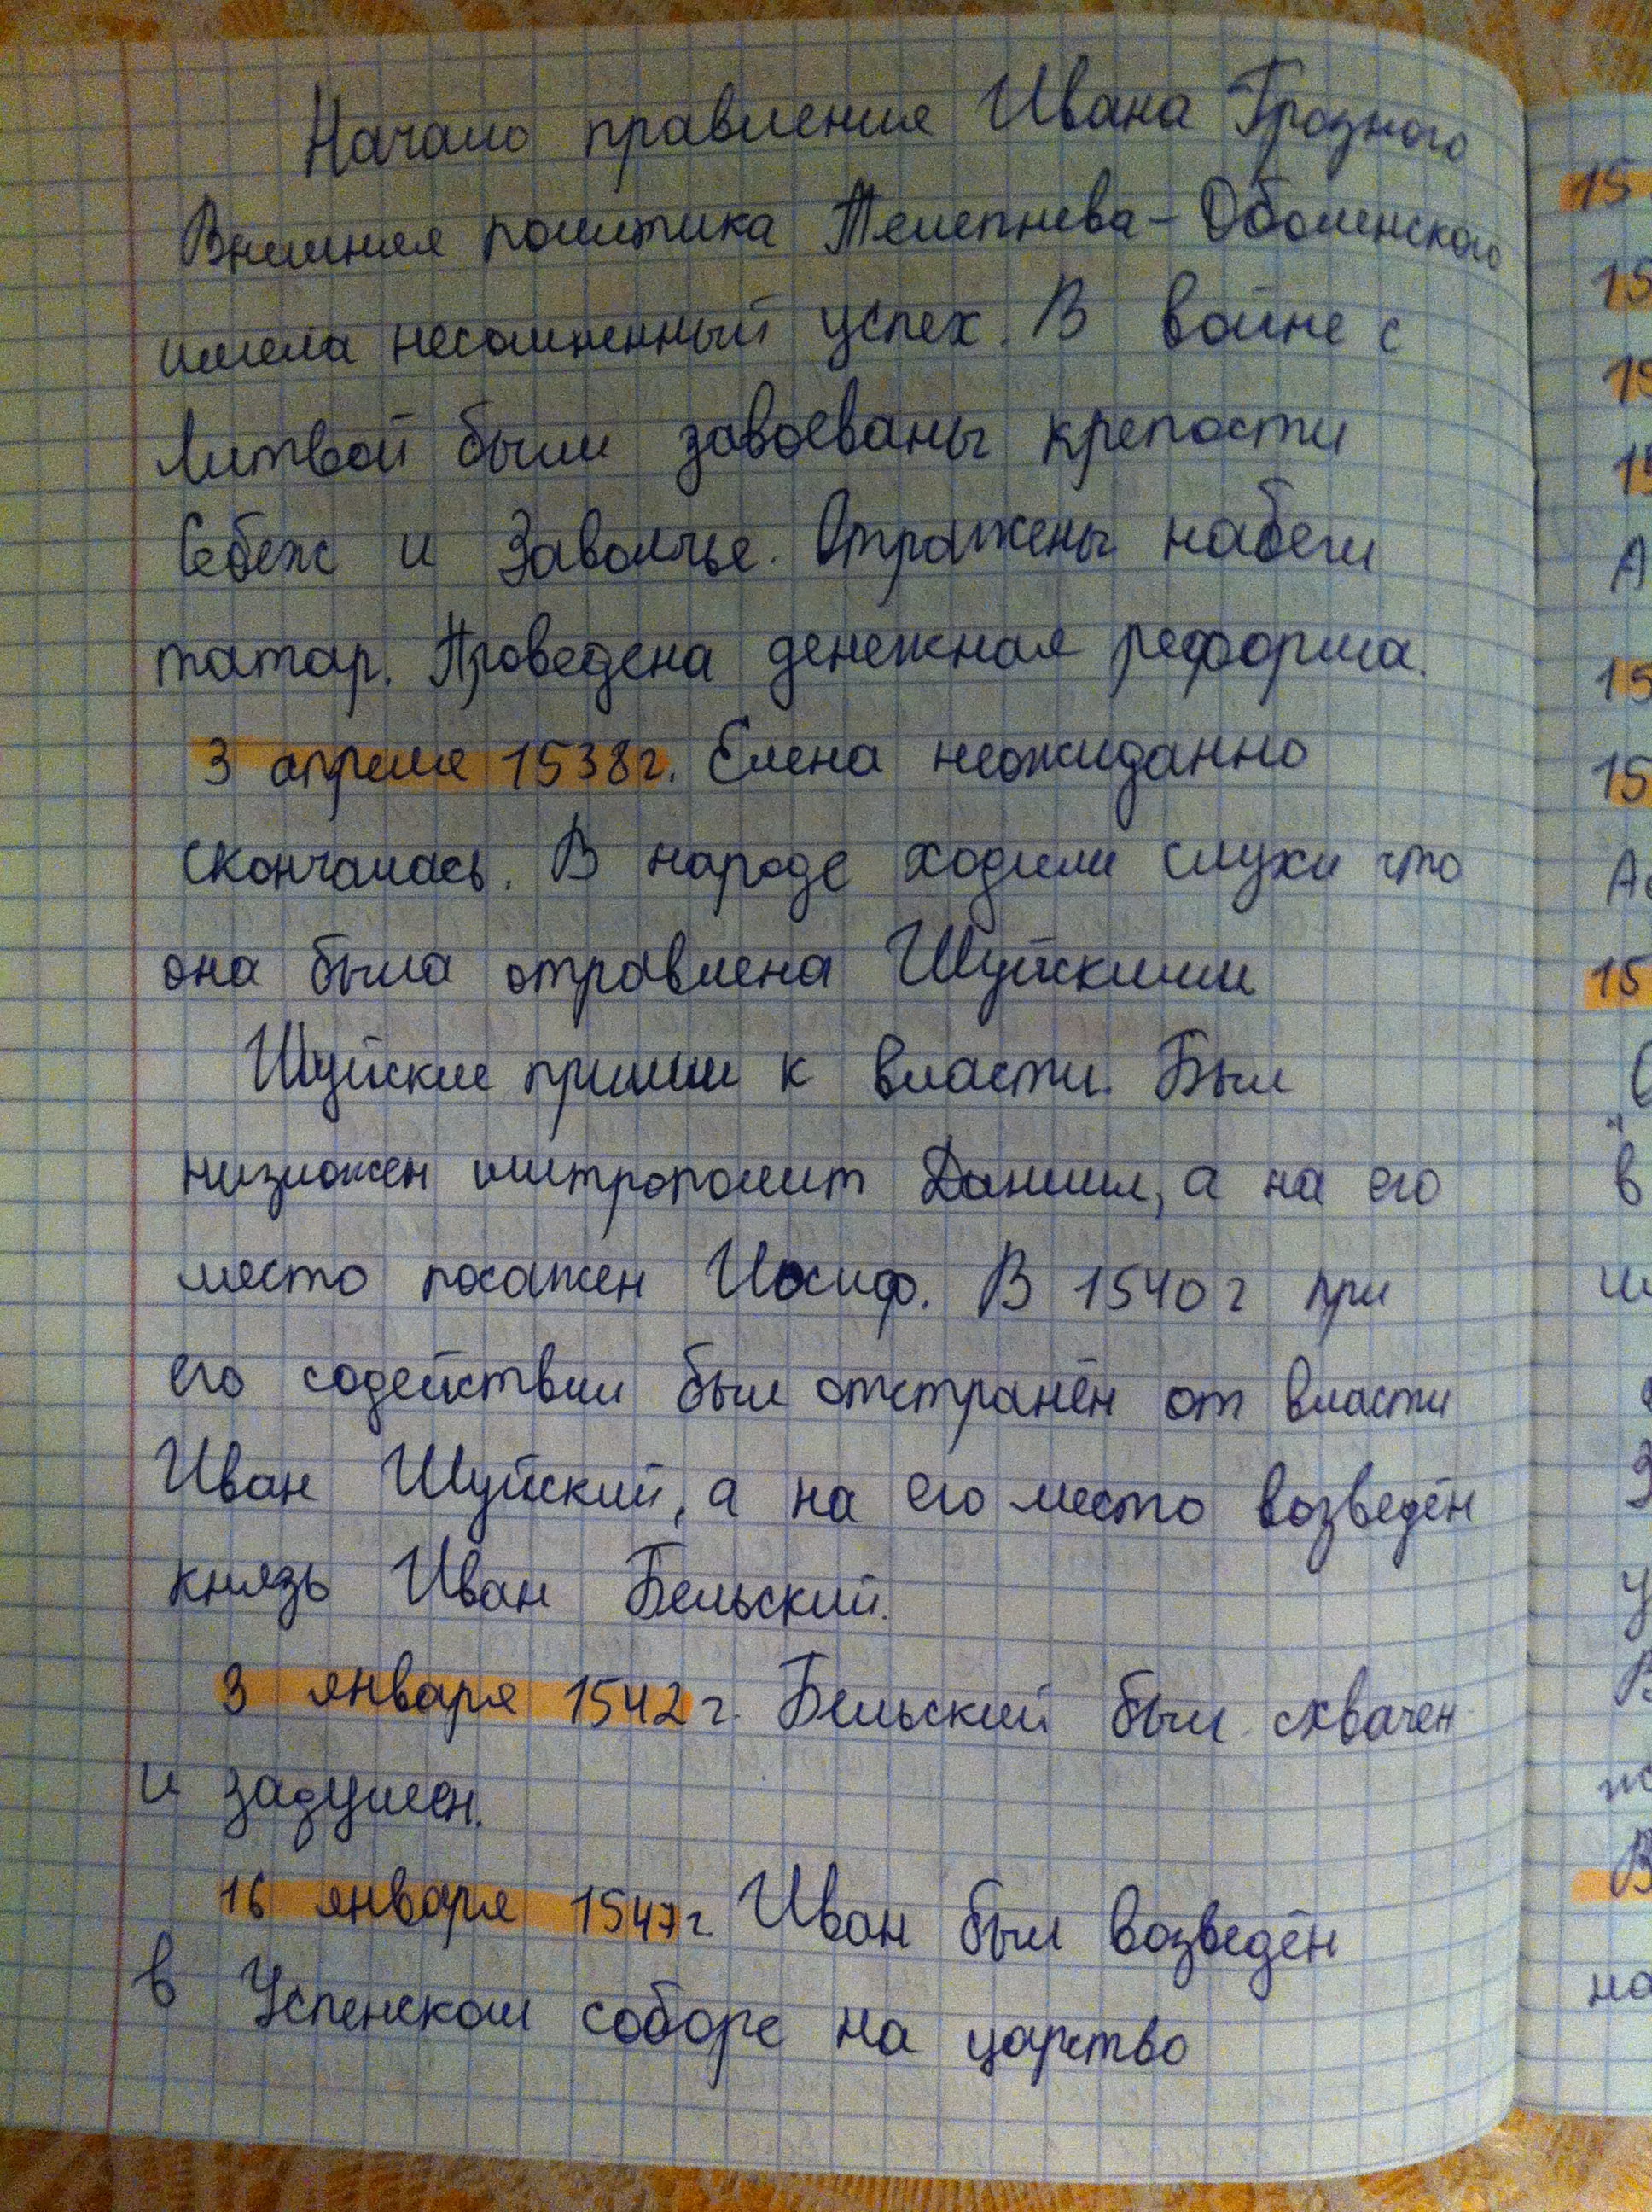 Начало правления Ивана Грозного
Внешняя политика Телепнева-Оболенского
имела несомненный успех. В войне с
Литвой были завоеваны крепости
Себеж и Заволчье. Отражены набеги
татар. Проведена денежная реформа.
3 апреля 1538г. Елена неожиданно
скончалась. В народе ходили слухи что
она была отравлена Шуйскими
Шуйские пришли к власти. Был
низложен митрополит Даниил, а на его
место посажен Иосиф. В 1540г при
его содействии был отстранён от власти
Иван Шуйский, а на его место возведён
князь Иван Бельский.
3 января 1542г. Бельский был схвачен
и задушен.
16 января 1547г. Иван был возведён
в Успенском соборе на царство
15
15
15
15
А
15
15
15
в
В
В
на